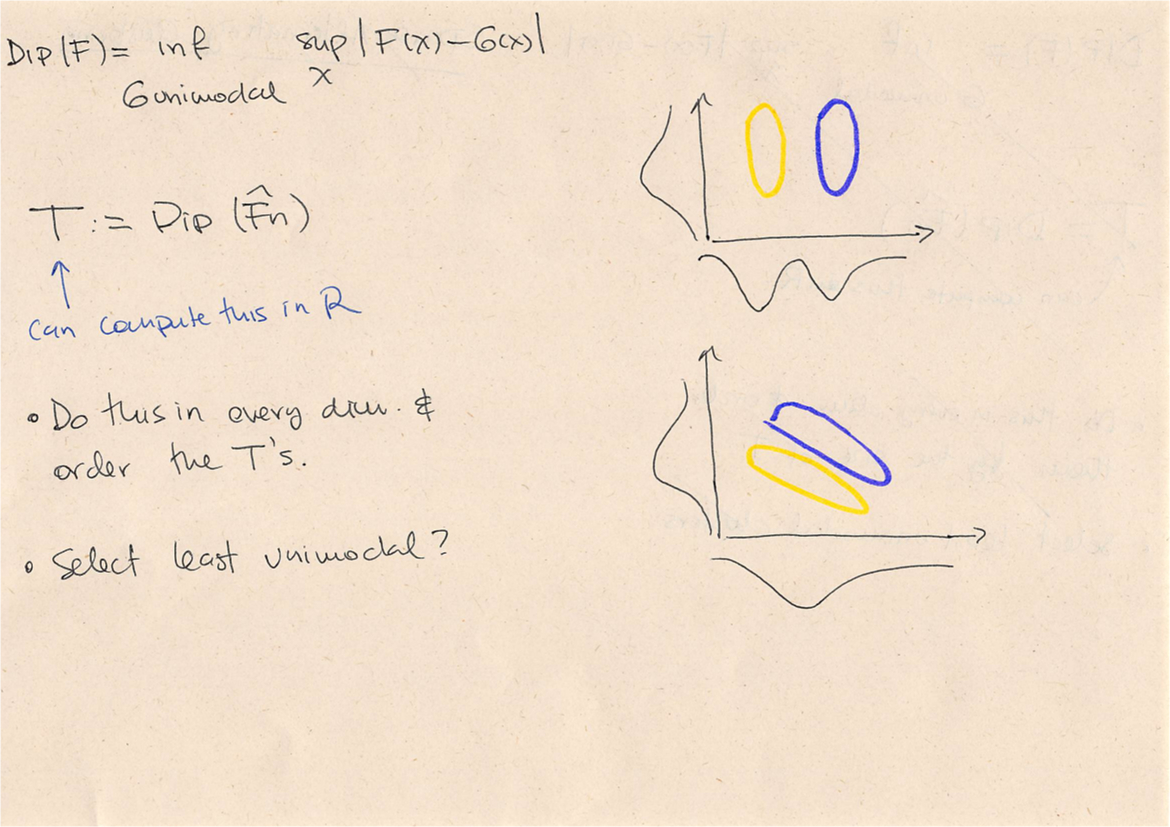 Dip(F) = inf sup |F(x) - G(x)|
G unimodal x
T := Dip (F̂n)
↑
can compute this in R
• Do this in every dim. &
order the T's.
• Select least unimodal?